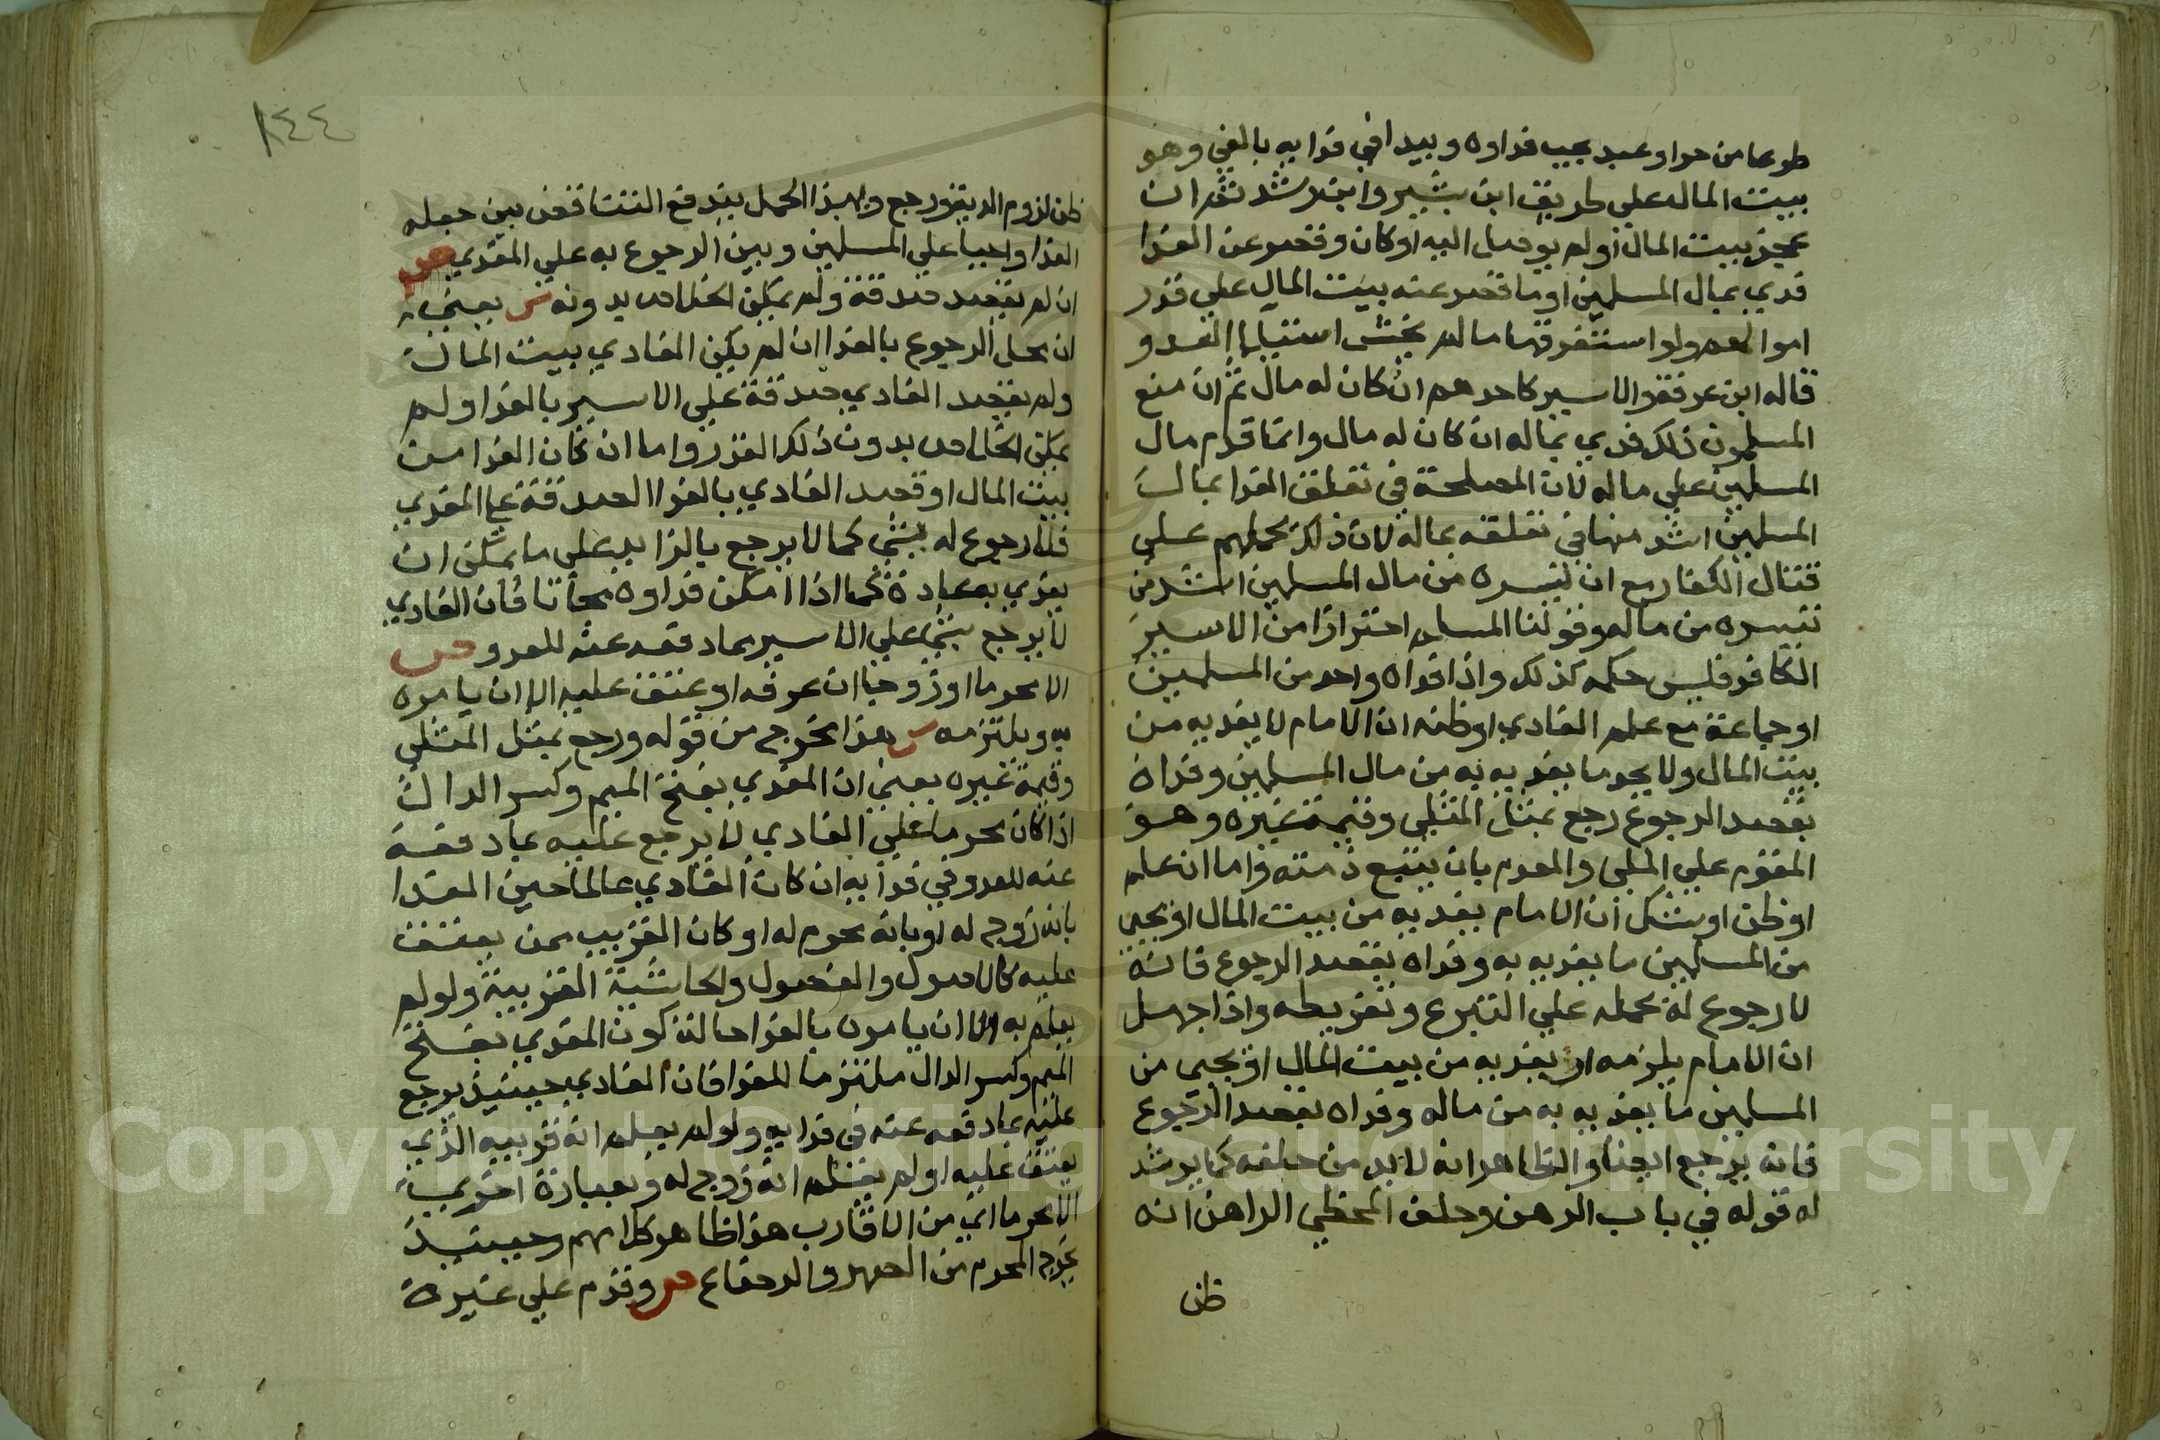 طوعا من حر او عبد يجب فداوه ويبدا في فدايه بالفي وهو
بيت المال علي طريق ابن بشير وابن رشد ثم ان
عجز بيت المال او لم يوصل اليه او كان وقصر عن الفدا
فدي بمال المسلمين او ما قصر عنه بيت المال علي قدر
اموالهم ولو استغرقها ما لم يخش استيلا العدو
قاله ابن عرفة والاسير كاحدهم ان كان له مال ثم ان منع
المسلمون ذلك فدي بماله ان كان له مال وانما قدم مال
المسلمين علي ماله لان المصلحة في تعلق الفدا بمال
المسلمين اشد منها في تعلقه بماله لان ذلك يحملهم علي
قتال الكفار مع ان تيسره من مال المسلمين اشد من
تيسره من ماله وقولنا المسلم احترازا من الاسير
الكافر فليس حكمه كذلك واذا فداه واحد من المسلمين
او جماعة مع علم الفادي او ظنه ان الامام لا يفديه من
بيت المال ولا يجد ما يفديه به من مال المسلمين وفداه
بقصد الرجوع رجع بمثل المثلي وقيمة غيره وهو
المقوم علي الملي والمعدم بان يتبع ذمته واما ان علم
او ظن او شك ان الامام يفديه من بيت المال او يجبي
من المسلمين ما يفديه به وفداه بقصد الرجوع فانه
لا رجوع له بحمله علي التبرع وتفريطه واذا جهل
ان الامام يلزمه ان يفديه من بيت المال او يجبي من
المسلمين ما يفديه به من ماله وفداه بقصد الرجوع
فانه يرجع ايضا والظاهر انه لابد من حلفه كما يرشد
له قوله في باب الرهن وحلف المخطي الراهن انه
ظن
٨٤٤
ظن لزوم الدية ورجع وبهذا الحمل يندفع التناقض بين جعله
الفدا واجبا علي المسلمين وبين الرجوع به علي المفدي ص
ان لم يقصد صدقة ولم يمكن الخلاص بدونه ش يعني
ان محل الرجوع بالفدا ان لم يكن الفادي بيت المال
ولم يقصد الفادي صدقة علي الاسير بالفدا ولم
يمكن الخلاص بدون ذلك القدر واما ان كان الفدا من
بيت المال او قصد الفادي بالفدا الصدقة علي المفدي
فلا رجوع له بشي كما لا يرجع بالزايد علي ما يمكن ان
يفدي به عادة كما اذا امكن فداوه مجانا فان الفادي
لا يرجع بشي علي الاسير بما دفعه عنه للعدو ص
الا محرما او زوجا ان عرفه او عتق عليه الا ان يامره
به ويلتزمه ش هذا مخرج من قوله ورجع بمثل المثلي
وقيمة غيره يعني ان المفدي بفتح الميم وكسر الدال
اذا كان محرما علي الفادي لا يرجع عليه بما دفعه
عنه للعدو في فدايه ان كان الفادي عالما حين الفدا
بانه زوج له او بانه محرم له او كان القريب ممن يعتق
عليه كالاصول والفصول والحاشية القريبة ولو لم
يعلم به الا ان يامره بالفدا حالة كون المفدي بفتح
الميم وكسر الدال ملتزما للفدا فان الفادي حينئذ يرجع
عليه بما دفعه عنه في فدايه ولو لم يعلم انه قريبه الذي
يعتق عليه او لم يعلم انه زوج له وبعبارة اخري
الا محرما اي من الاقارب هذا ظاهر كلامهم وحينئذ
يخرج المحرم من الصهر والرضاع ص وقدم علي غيره
Copyright © King Saud University